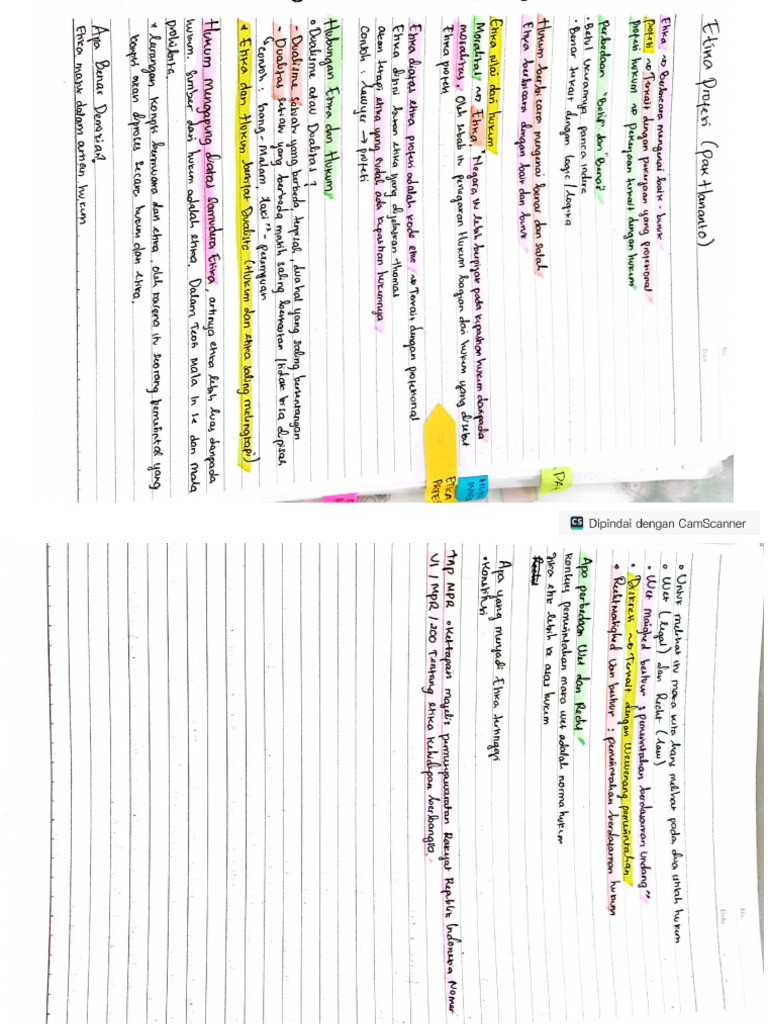 Etika Profesi (Pak Harianto)
Etika → Berbicara mengenai baik - buruk
Profesi → Terkait dengan pekerjaan yang profesional
Profesi hukum → Pekerjaan terkait dengan hukum
Perbedaan "Betul dan "Benar"
- Betul ukurannya panca indera
- Benar terkait dengan logic / Logika
Hukum berbicara mengenai benar dan salah
Etika berbicara dengan baik dan buruk
Etika Nilai dan hukum
Moralitas → Etika, Negara ini lebih berpijak pada kepastian hukum daripada
moralitas. Oleh sebab itu penegakan Hukum bagian dari hukum yang disebut
Etika profesi
Etika diatas etika profesi adalah kode etik → Terkait dengan profesional
Etika disini bukan etika yang dijelaskan thomas
akan tetapi etika yang sudah ada kepastian hukumnya
Contoh : Lawyer → profesi
Hubungan Etika dan Hukum
• Dualisme atau Dualitas ?
- Dualisme : sesuatu yang berbeda, terpisah, dua hal yang saling bertentangan
- Dualitas : sesuatu yang berbeda masih saling berkaitan / tidak bisa dipisah
"Contoh : Siang - Malam, laki" - perempuan
* Etika dan Hukum bersifat Dualistis (Hukum dan etika saling melengkapi)
Hukum Mengapung diatas Samudera Etika, artinya etika lebih luas daripada
hukum. Sumber dari hukum adalah etika. Dalam Teori Mala In Se dan Mala
Prohibita.
* Larangan korupsi bermuara dari etika, oleh karena itu seorang pemerintah yang
korupsi akan diproses secara hukum dan etika.
Apa Benar Demikian
Etika masuk dalam aturan hukum
HUK
ETIKA
PROFE
Dipindai dengan CamScanner
No.
Date
• Untuk melihat itu maka kita harus melihat pada dua istilah hukum
• Wet (legal) dan Recht (law)
• Wet Matighed bestuur : pemerintahan berdasarkan undang"
• Diskresi → Terkait dengan wewenang pemerintahan
• Rechtmatighed Van bestuur : pemerintahan berdasarkan hukum
Apa perbedaan Wet dan Recht
konteks pemerintahan maka wet adalah norma hukum
jika etik lebih ke asas hukum
Apa yang menjadi Etika tertinggi
• Konstitusi
TAP MPR • Ketetapan majelis permusyawaratan Rakyat Republik Indonesia Nomor
VI / MPR / 200 Tentang etika kehidupan berbangsa.